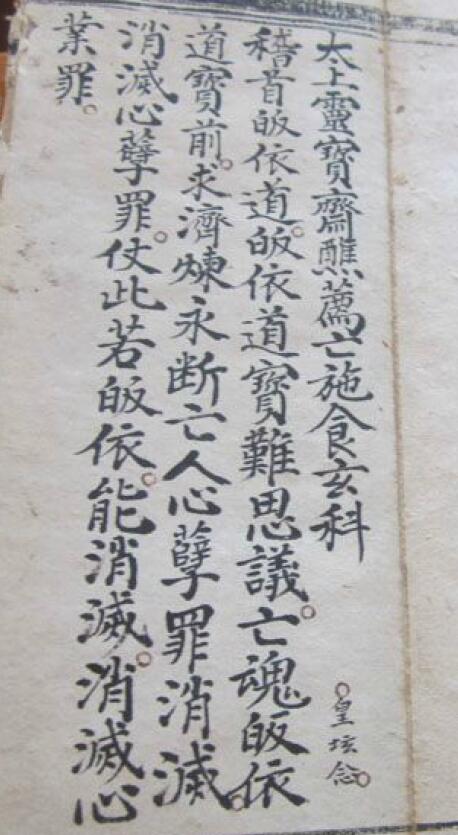 太上靈寶齋醮薦亡施食玄科
皇垓念
稽首皈依道。皈依道寶難思議。亡魂皈依
道寶前。求濟煉永断亡人心孽罪消滅。
消滅心孽罪。仗此若皈依。能消滅。消滅心
業罪。